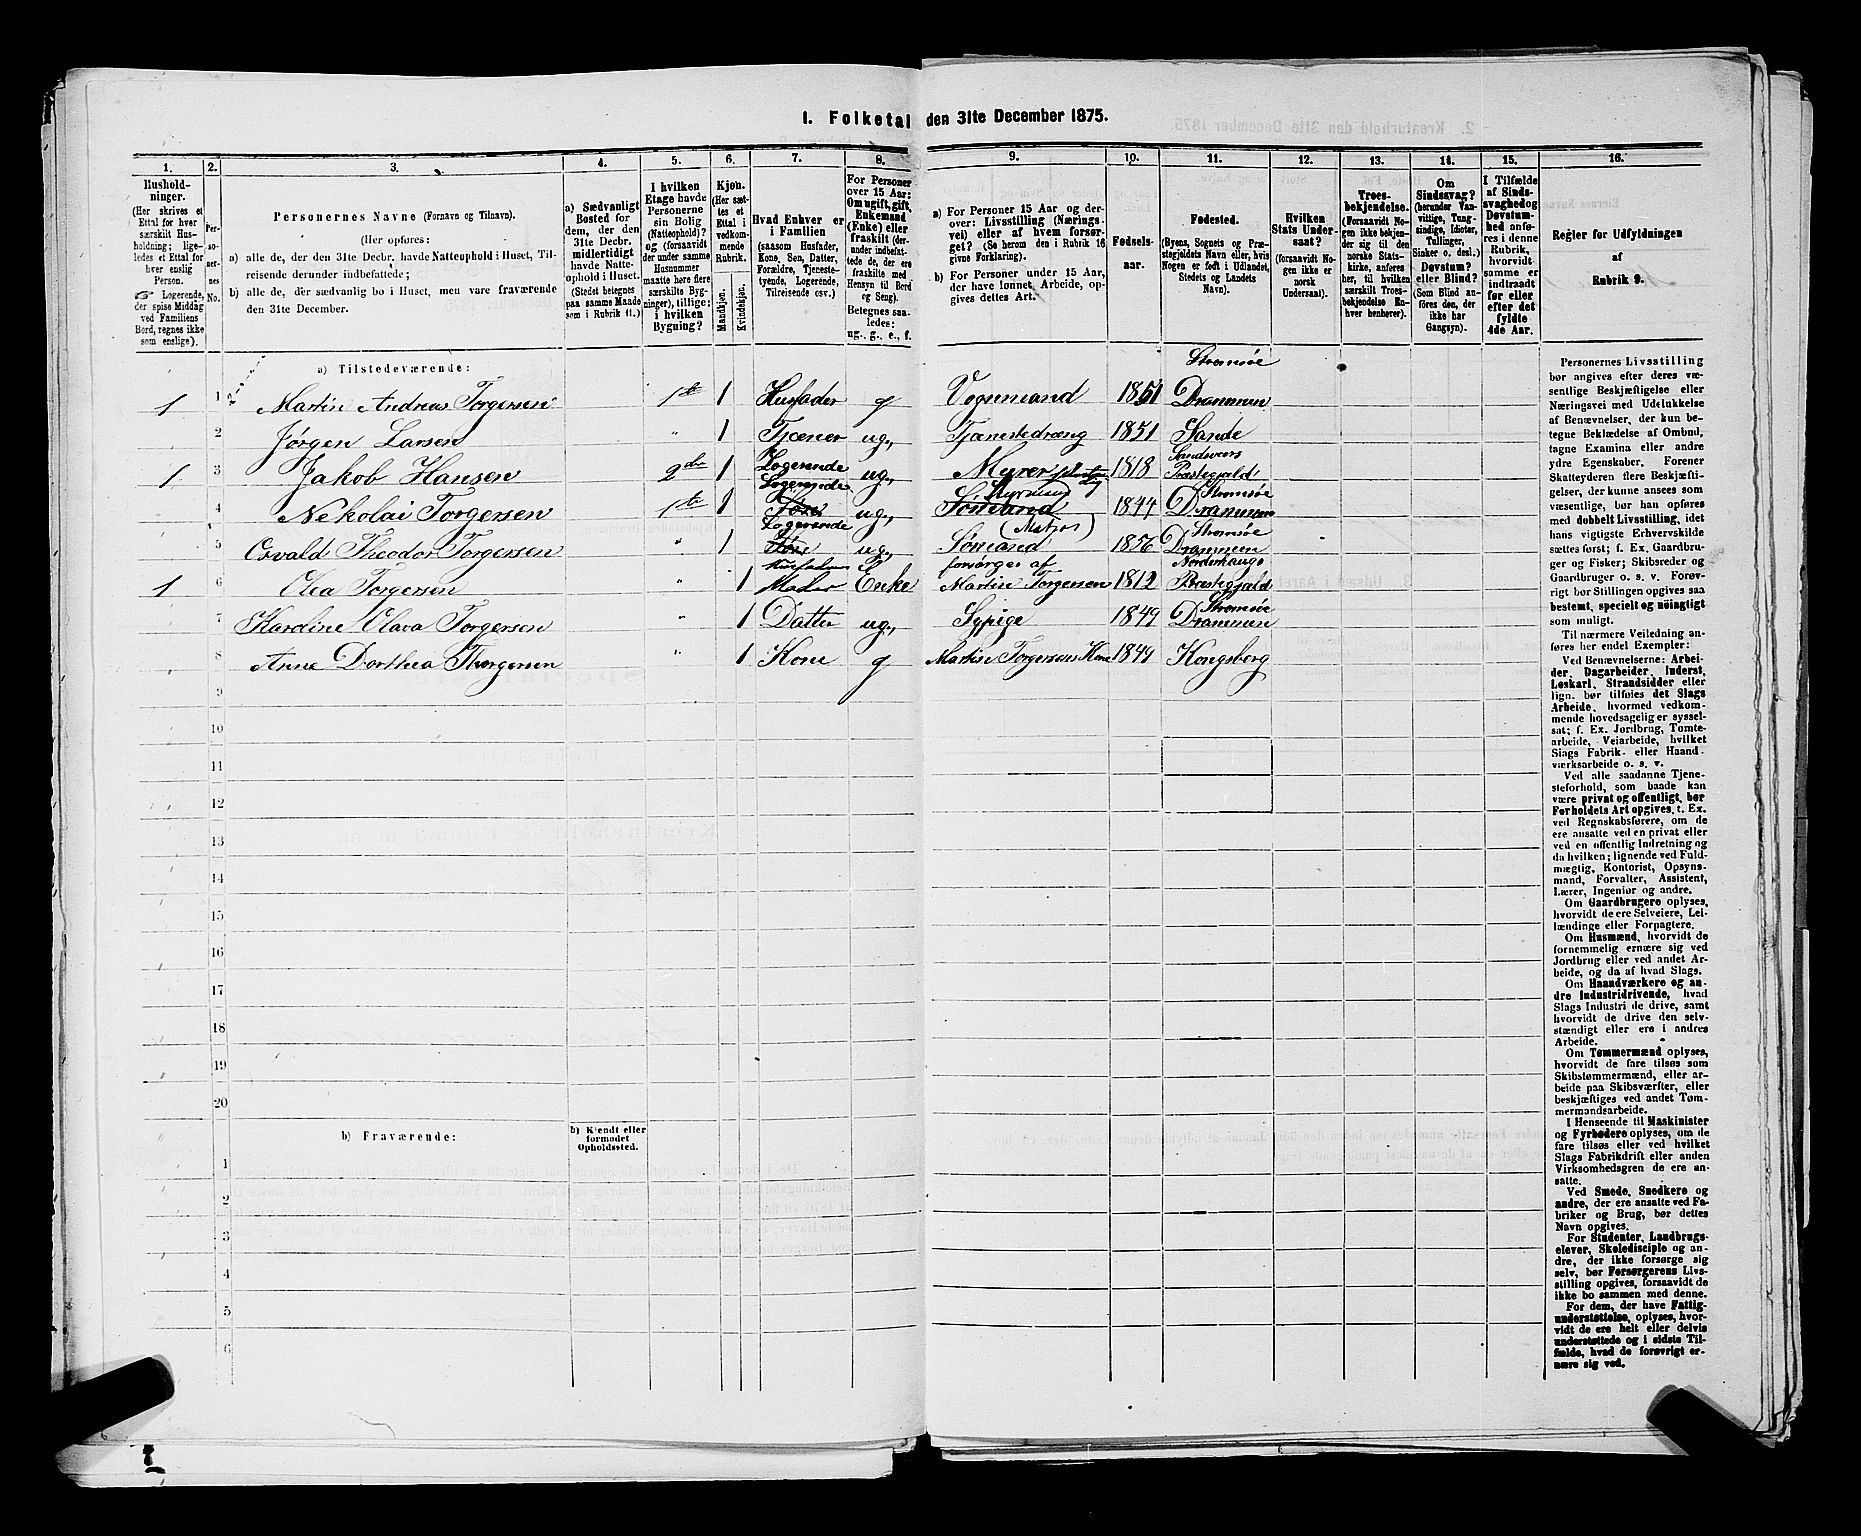 1. Folketal den 31te December 1875.
1. 2. 3. 4. 5. 6. 7. 8. 9. 10. 11. 12. 13. 14. 15. 16.
Hushold-
ninger.
(Her skrives et
Ettal for hver
særskilt Hus-
holdning; lige-
ledes et Ettal for
hver enslig
Person.
☞ Logerende,
der spise Middag
ved Familiens
Bord, regnes ikke
som enslige).
Per-
so-
ner-
nes
No.
Personernes Navne (Fornavn og Tilnavn).
(Her opføres:
a) alle de, der den 31te Decbr. havde Natteophold i Huset, Til-
reisende derunder indbefattede;
b) alle de, der sædvanlig bo i Huset, men vare fraværende
den 31te December.
a) Sædvanligt
Bosted for
dem, der den
31te Decbr.
midlertidigt
havde Natte-
ophold i Huset.
(Stedet betegnes
paa samme Maade
som i Rubrik 11.)
I hvilken
Etage havde
Personerne
sin Bolig
(Natteophold)?
og (forsaavidt
der under samme
Husnummer
maatte høre flere
særskilte Byg-
ninger), tillige:
i hvilken
Bygning?
Kjøn.
(Her sæt-
tes et
Ettal i
vedkom-
mende
Rubrik.
Mandkjøn.
Kvindekjøn.
Hvad Enhver er
i Familien
(saasom Husfader,
Kone, Søn, Datter,
Forældre, Tjeneste-
tyende, Logerende,
Tilreisende osv.)
For Personer
over 15 Aar:
Om ugift, gift,
Enkemand
(Enke) eller
fraskilt (der-
under indbefat-
tede de, der ere
fraskilte med
Hensyn til Bord
og Seng).
Betegnes saa-
ledes:
ug., g., e., f.
a) For Personer 15 Aar og der-
over: Livsstilling (Nærings-
vei) eller af hvem forsør-
get? (Se herom den i Rubrik 16
givne Forklaring).
b) For Personer under 15 Aar,
der have lønnet Arbeide, op-
gives dettes Art.
Fødsels-
aar.
Fødested.
(Byens, Sognets og Præ-
stegjeldets Navn eller, hvis
Nogen er født i Udlandet,
Stedets og Landets
Navn).
Hvilken
Stats Under-
saat?
(forsaavidt No-
gen ikke er
norsk
Undersaat).
Troes-
bekjendelse.
(Forsaavidt No-
gen ikke bekjen-
der sig til den
norske Stats-
kirke, anføres
her, til hvilken
særskilt Troes-
bekjendelse En-
hver henhører).
Om
Sindssvag?
(herunder Van-
vittige, Tung-
sindige, Idioter,
Tullinger,
Sinker o. desl.)
Døvstum?
eller Blind?
(Som Blind an-
føres den, der
ikke har
Gangsyn).
I Tilfælde
af Sinds-
svaghed og
Døvstum-
hed anfø-
res i denne
Rubrik,
hvorvidt
samme er
indtraadt
før eller
efter det
fyldte
4de Aar.
Regler for Udfyldningen
af
Rubrik 9.
a) Tilstedeværende:
1 1 Martin Andreas Torgersen 1ste 1 Husfader g Vognmand 1851 Strømsøe Drammen
2 Jørgen Larsen " 1 Tjener ug., Tjenestedræng 1851 Sande
1 3 Jakob Hansen 2den 1 Logerende ug., Murer 1818 Sandsværs Præstegjæld
4 Nekolai Torgersen 1ste 1 Logerende Søn ug., Styrmand Sømand 1844 Strømsøe Drammen
5 Osvald Theodor Torgersen " 1 Logerende Søn ug., Sømand (Matros) 1856 Strømsøe Drammen
1 6 Olea Torgersen " 1 Husfaders Moder Enke forsørges af Martin Torgersen 1812 Norderhaugs Præstegjæld
7 Karoline Olava Torgersen " 1 Datter ug., Sypige 1849 Strømsøe Drammen
8 Anne Dorthea Thorgersen " 1 Kone g Martin Torgersens Kone 1849 Kongsberg
9
10
11
12
13
14
15
16
17
18
19
20
b) Fraværende:
b) Kjendt eller
formodet
Opholdssted.
1
2
3
4
5
6
Personernes Livsstilling
bør angives efter deres væ-
sentlige Beskjæftigelse eller
Næringsvei med Udelukkelse
af Benævnelser, der kun be-
tegne Beklædelse af Ombud,
tagne Examina eller andre
ydre Egenskaber. Forener
Skatteyderen flere Beskjæf-
tigelser, der kunne ansees som
væsentlige, bør han opføres
med dobbelt Livsstilling, idet
hans vigtigste Erhvervskilde
sættes først; f. Ex. Gaardbru-
ger og Fisker; Skibsreder og
Gaardbruger o. s. v. Forøv-
rigt bør Stillingen opgives saa
bestemt, specielt og nöiagtigt
som muligt.
Til nærmere Veiledning an-
føres her endel Exempler:
Ved Benævnelserne: Arbei-
der, Dagarbeider, Inderst,
Løskarl, Strandsidder eller
lign. bør tilføies det Slags
Arbeide, hvormed vedkom-
mende hovedsagelig er syssel-
sat; f. Ex. Jordbrug, Tømte-
arbeide, Veiarbeide, hvilket
Slags Fabrik- eller Haand-
værksarbeide o. s. v.
Ved alle saadanne Tjene-
steforhold, som baade kan
være privat og offentligt, bør
Forholdets Art opgives, t. Ex.
ved Regnskabsførere, om de
ere ansatte ved en privat eller
ved en offentlig Indretning og
da hvilken; lignende ved Fuld-
mægtig, Kontorist, Opsyns-
mand, Forvalter, Assistent,
Lærer, Ingeniør og andre.
Om Gaardbrugere oplyses,
hvorvidt de ere Selveiere, Lei-
lændinge eller Forpagtere.
Om Husmænd, hvorvidt de
fornemmelig ernære sig ved
Jordbrug eller ved andet Ar-
beide, og da af hvad Slags.
Om Haandværkere og an-
dre Industridrivende, hvad
Slags Industri de drive, samt
hvorvidt de drive den selv-
stændigt eller ere i andres
Arbeide.
Om Tømmermænd oplyses,
hvorvidt de fare tilsøs som
Skibstømmermænd, eller ar-
beide paa Skibsværfter, eller
beskjæftiges ved andet Tøm-
mermandsarbeide.
I Henseende til Maskinister
og Fyrbødere oplyses, om de
fare tilsøs eller ved hvilket
Slags Fabrikdrift eller anden
Virksomhedsgren de ere an-
satte.
Ved Smede, Snedkere og
andre, der ere ansatte ved Fa-
briker og Brug, bør dettes
Navn opgives.
For Studenter, Landbrugs-
elever, Skoledisciple og an-
dre, der ikke forsørge sig
selv, bør Forsørgerens Livs-
stilling opgives, forsaavidt de
ikke bo sammen med denne.
For dem, der have Fattig-
understøttelse, oplyses, hvor-
vidt de ere helt eller delvis
understøttede og i sidste Til-
fælde, hvad de forøvrigt er-
nære sig ved.